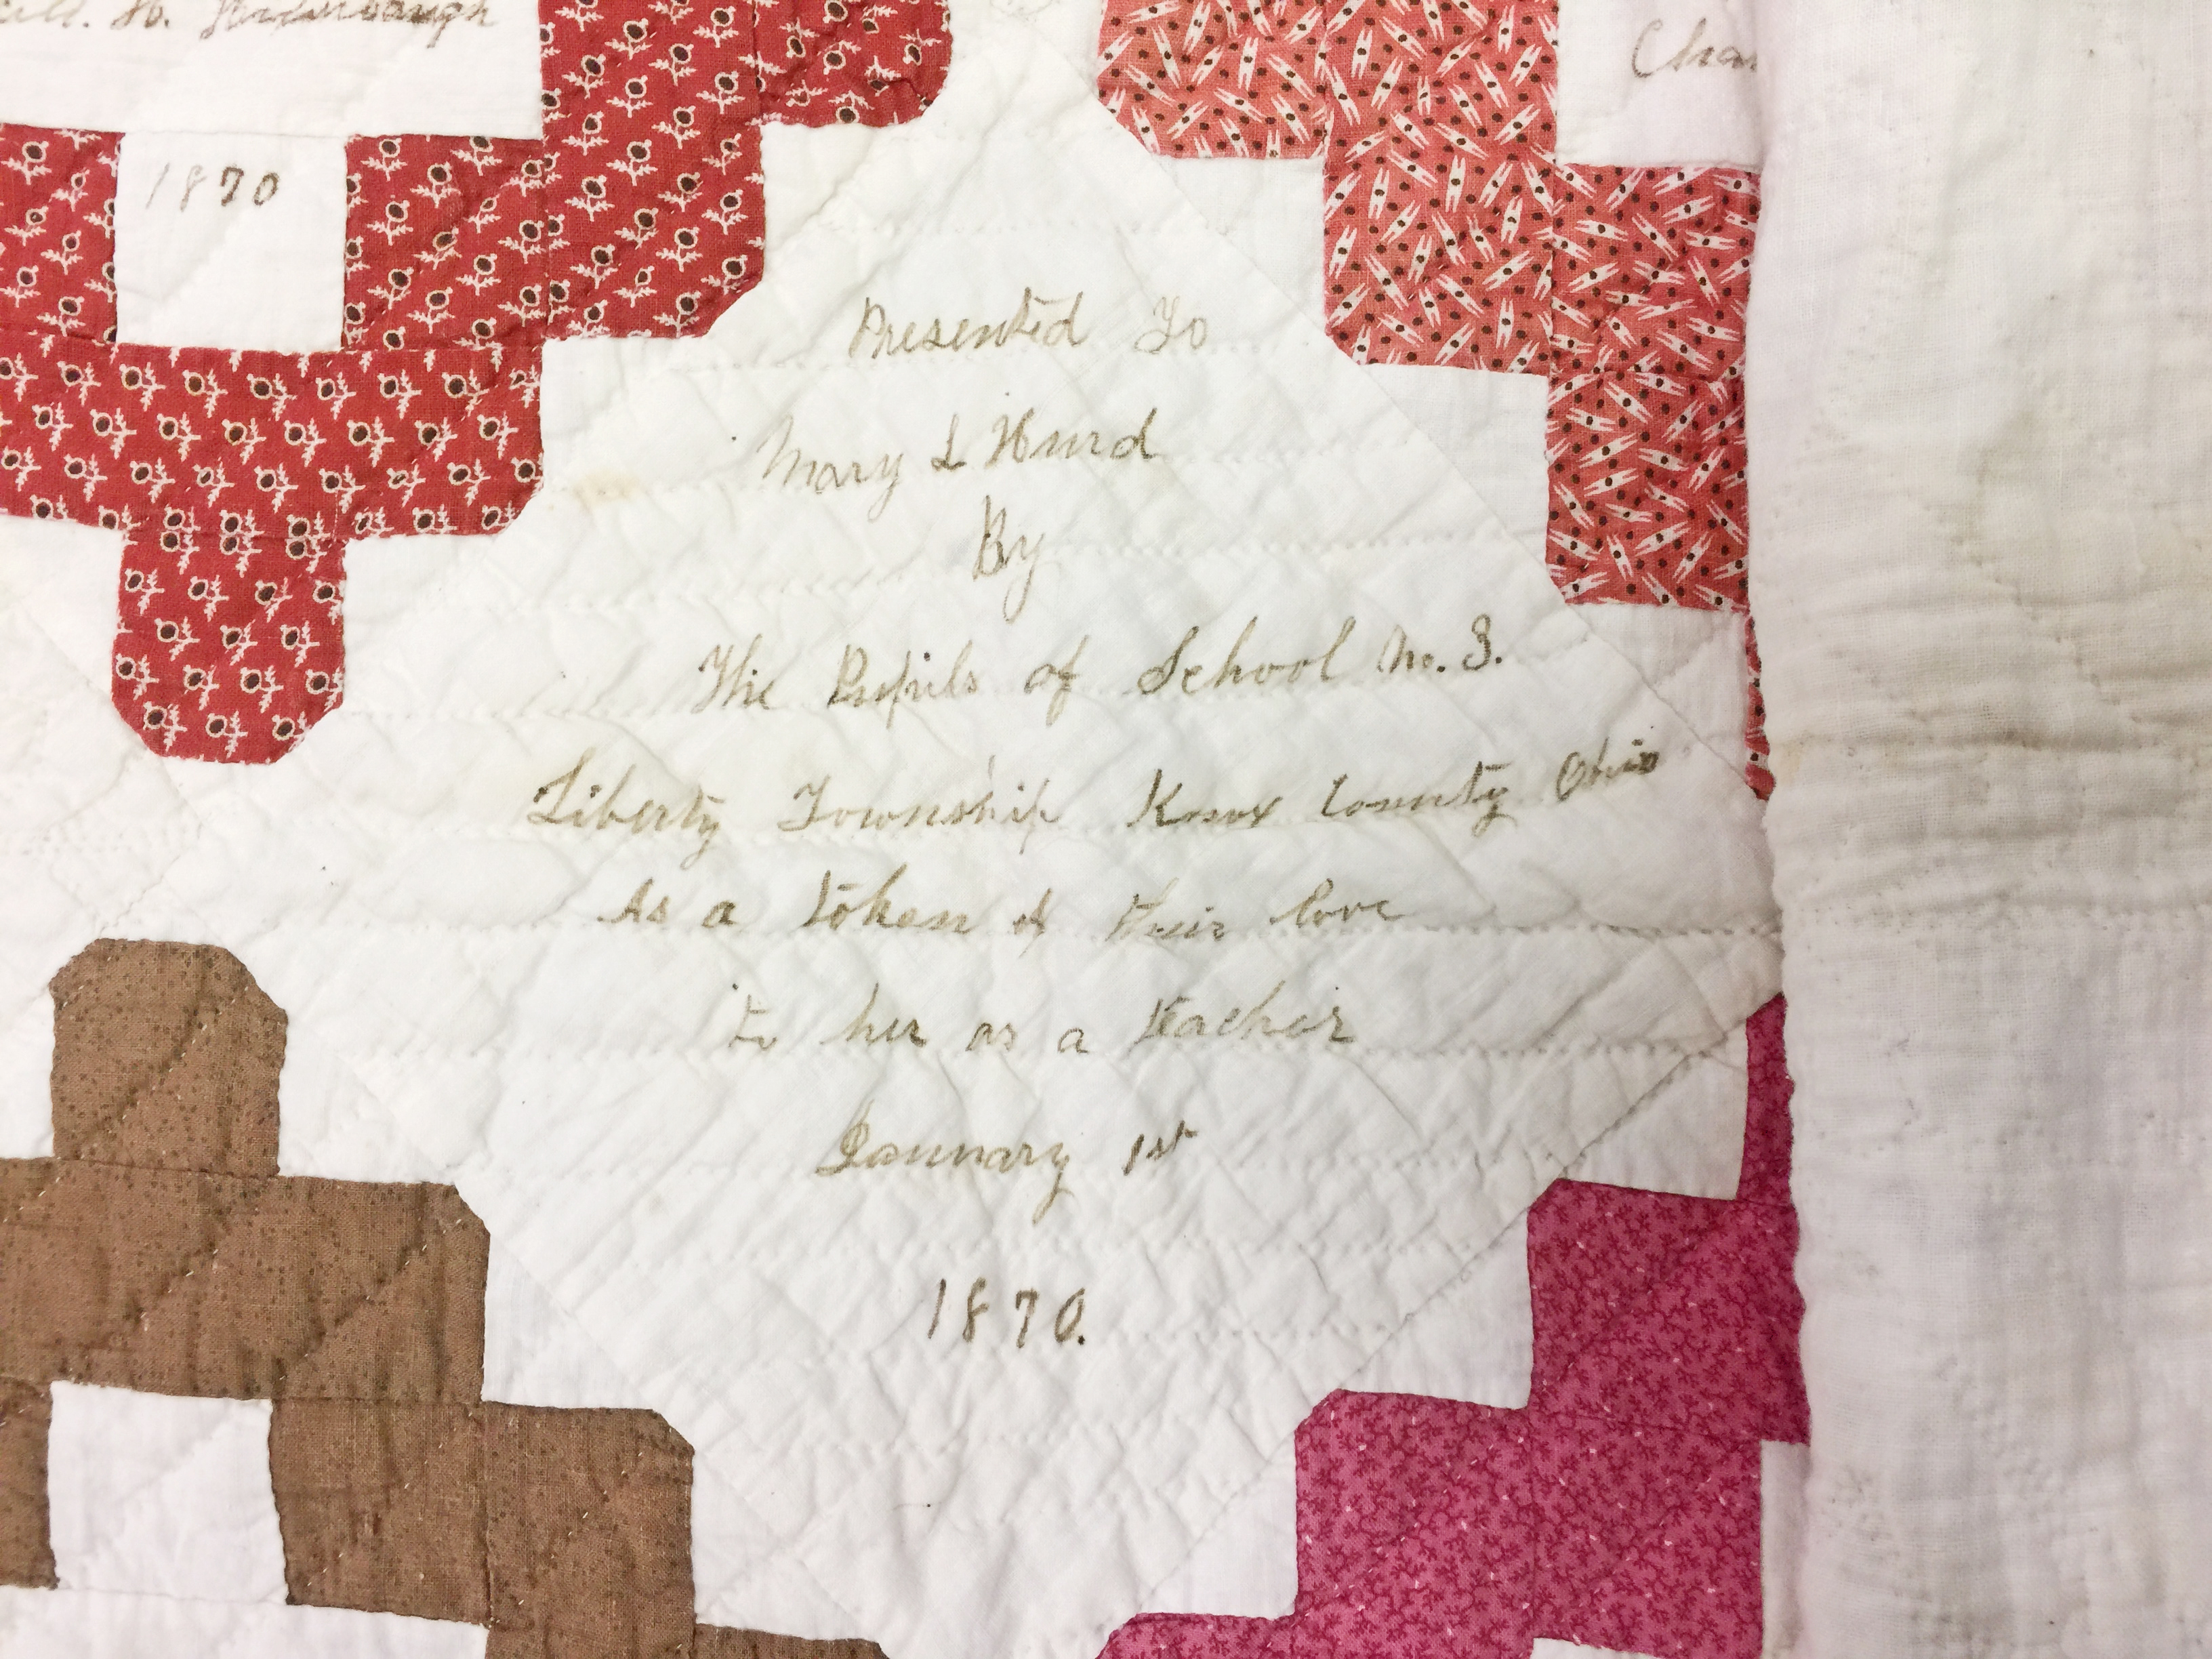 H.
1870
Presented To
Mary L Hurd
By
The Pupils of School No. 3.
Liberty Township Knox County Ohio
As a token of their love
to her as a teacher
January 1st
1870.